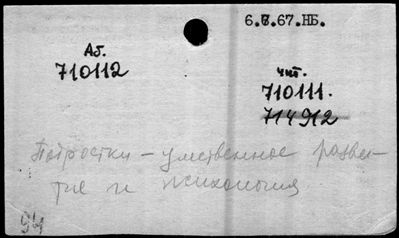 6.6.67.НБ.
Аб.
710112
чит.
710111.
714912
Подростки – умственное разви-
тие и психология
94